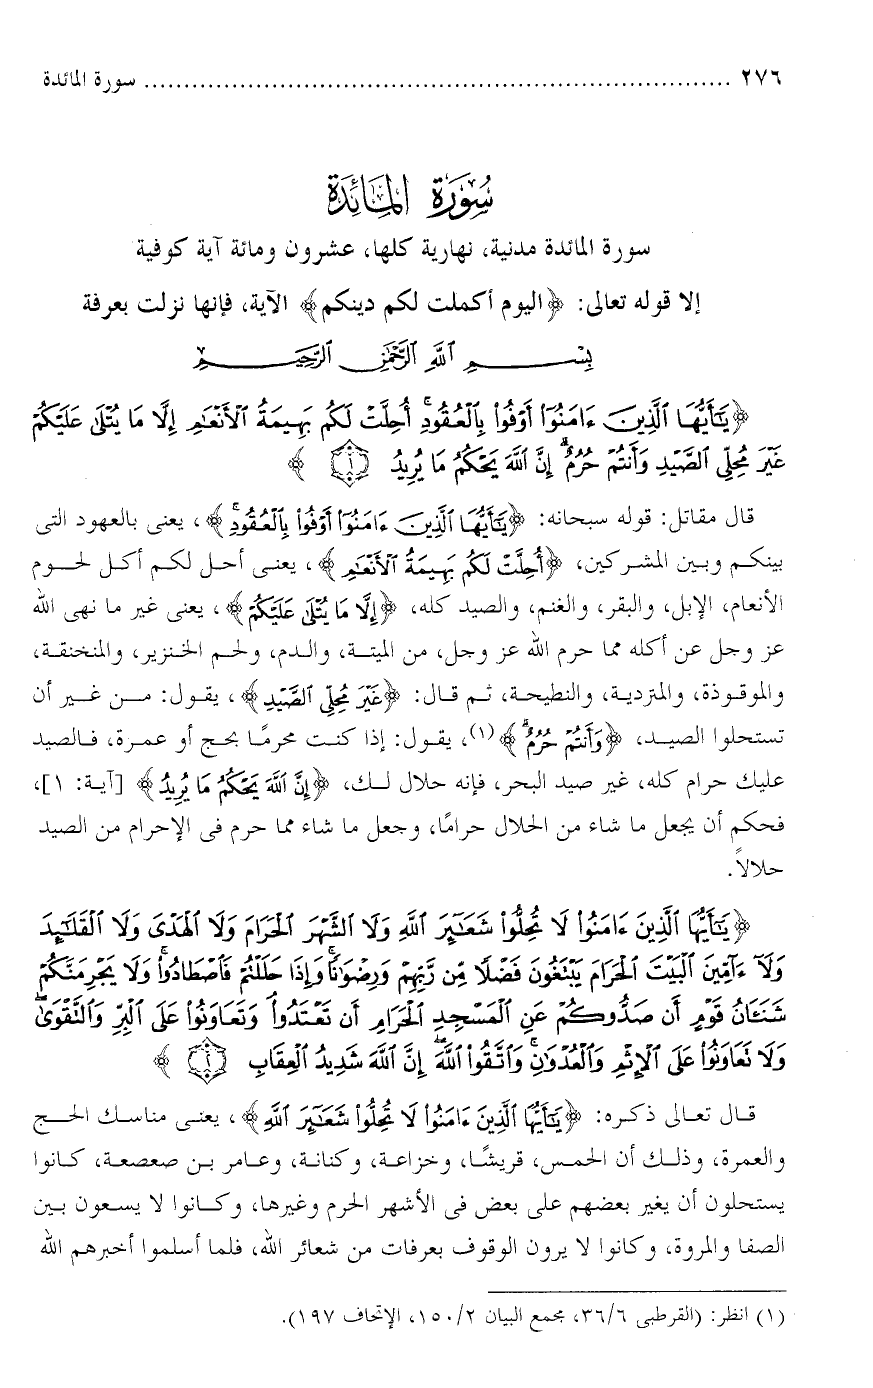 ٢٧٦ ........................................................................... سورة المائدة
سُورَةُ المَائِدَة
سورة المائدة مدنية، نهارية كلها، عشرون ومائة آية كوفية
إلا قوله تعالى: ﴿اليوم أكملت لكم دينكم﴾ الآية، فإنها نزلت بعرفة
بِسْمِ ٱللَّهِ ٱلرَّحْمَٰنِ ٱلرَّحِيمِ
﴿يَٰٓأَيُّهَا ٱلَّذِينَ ءَامَنُوٓا۟ أَوْفُوا۟ بِٱلْعُقُودِ ۚ أُحِلَّتْ لَكُم بَهِيمَةُ ٱلْأَنْعَٰمِ إِلَّا مَا يُتْلَىٰ عَلَيْكُمْ
غَيْرَ مُحِلِّى ٱلصَّيْدِ وَأَنتُمْ حُرُمٌ ۗ إِنَّ ٱللَّهَ يَحْكُمُ مَا يُرِيدُ ١ ﴾
قال مقاتل: قوله سبحانه: ﴿يَٰٓأَيُّهَا ٱلَّذِينَ ءَامَنُوٓا۟ أَوْفُوا۟ بِٱلْعُقُودِ ۚ﴾، يعنى بالعهود التى
بينكم وبين المشركين، ﴿أُحِلَّتْ لَكُم بَهِيمَةُ ٱلْأَنْعَٰمِ﴾، يعنى أحل لكم أكل لحوم
الأنعام، الإبل، والبقر، والغنم، والصيد كله، ﴿إِلَّا مَا يُتْلَىٰ عَلَيْكُمْ﴾، يعنى غير ما نهى الله
عز وجل عن أكله مما حرم الله عز وجل، من الميتة، والدم، ولحم الخنزير، والمنخنقة،
والموقوذة، والمتردية، والنطيحة، ثم قال: ﴿غَيْرَ مُحِلِّى ٱلصَّيْدِ﴾، يقول: من غير أن
تستحلوا الصيد، ﴿وَأَنتُمْ حُرُمٌ ۗ﴾(١)، يقول: إذا كنت محرمًا بحج أو عمرة، فالصيد
عليك حرام كله، غير صيد البحر، فإنه حلال لك، ﴿إِنَّ ٱللَّهَ يَحْكُمُ مَا يُرِيدُ﴾ [آية: ١]،
فحكم أن يجعل ما شاء من الحلال حرامًا، وجعل ما شاء مما حرم فى الإحرام من الصيد
حلالاً.
﴿يَٰٓأَيُّهَا ٱلَّذِينَ ءَامَنُوا۟ لَا تُحِلُّوا۟ شَعَٰٓئِرَ ٱللَّهِ وَلَا ٱلشَّهْرَ ٱلْحَرَامَ وَلَا ٱلْهَدْىَ وَلَا ٱلْقَلَٰٓئِدَ
وَلَآ ءَآمِّينَ ٱلْبَيْتَ ٱلْحَرَامَ يَبْتَغُونَ فَضْلًا مِّن رَّبِّهِمْ وَرِضْوَٰنًا ۚ وَإِذَا حَلَلْتُمْ فَٱصْطَادُوا۟ ۚ وَلَا يَجْرِمَنَّكُمْ
شَنَـَٔانُ قَوْمٍ أَن صَدُّوكُمْ عَنِ ٱلْمَسْجِدِ ٱلْحَرَامِ أَن تَعْتَدُوا۟ ۘ وَتَعَاوَنُوا۟ عَلَى ٱلْبِرِّ وَٱلتَّقْوَىٰ ۖ
وَلَا نَعَاوَنُوا۟ عَلَى ٱلْإِثْمِ وَٱلْعُدْوَٰنِ ۚ وَٱتَّقُوا۟ ٱللَّهَ ۖ إِنَّ ٱللَّهَ شَدِيدُ ٱلْعِقَابِ ﴾
قال تعالى ذكره: ﴿يَٰٓأَيُّهَا ٱلَّذِينَ ءَامَنُوا۟ لَا تُحِلُّوا۟ شَعَٰٓئِرَ ٱللَّهِ﴾، يعنى مناسك الحج
والعمرة، وذلك أن الحمس، قريشًا، وخزاعة، وكنانة، وعامر بن صعصعة، كانوا
يستحلون أن يغير بعضهم على بعض فى الأشهر الحرم وغيرها، وكانوا لا يسعون بين
الصفا والمروة، وكانوا لا يرون الوقوف بعرفات من شعائر الله، فلما أسلموا أخبرهم الله
(١) انظر: (القرطبى ٣٦/٦، مجمع البيان ١٥٠/٢، الإتحاف ١٩٧).